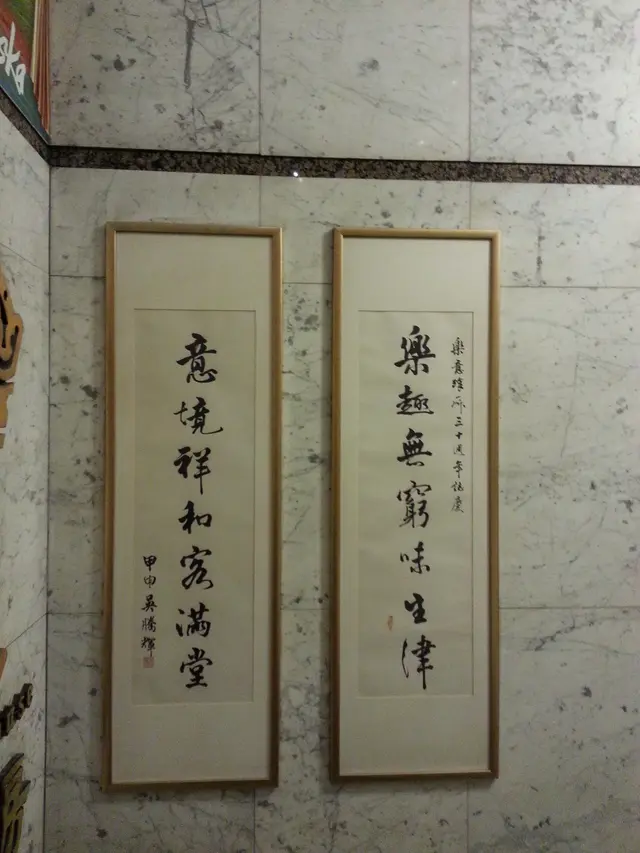 樂意雅所三十週年誌慶
樂趣無窮味生律
意境祥和客滿堂
甲申吳騰輝